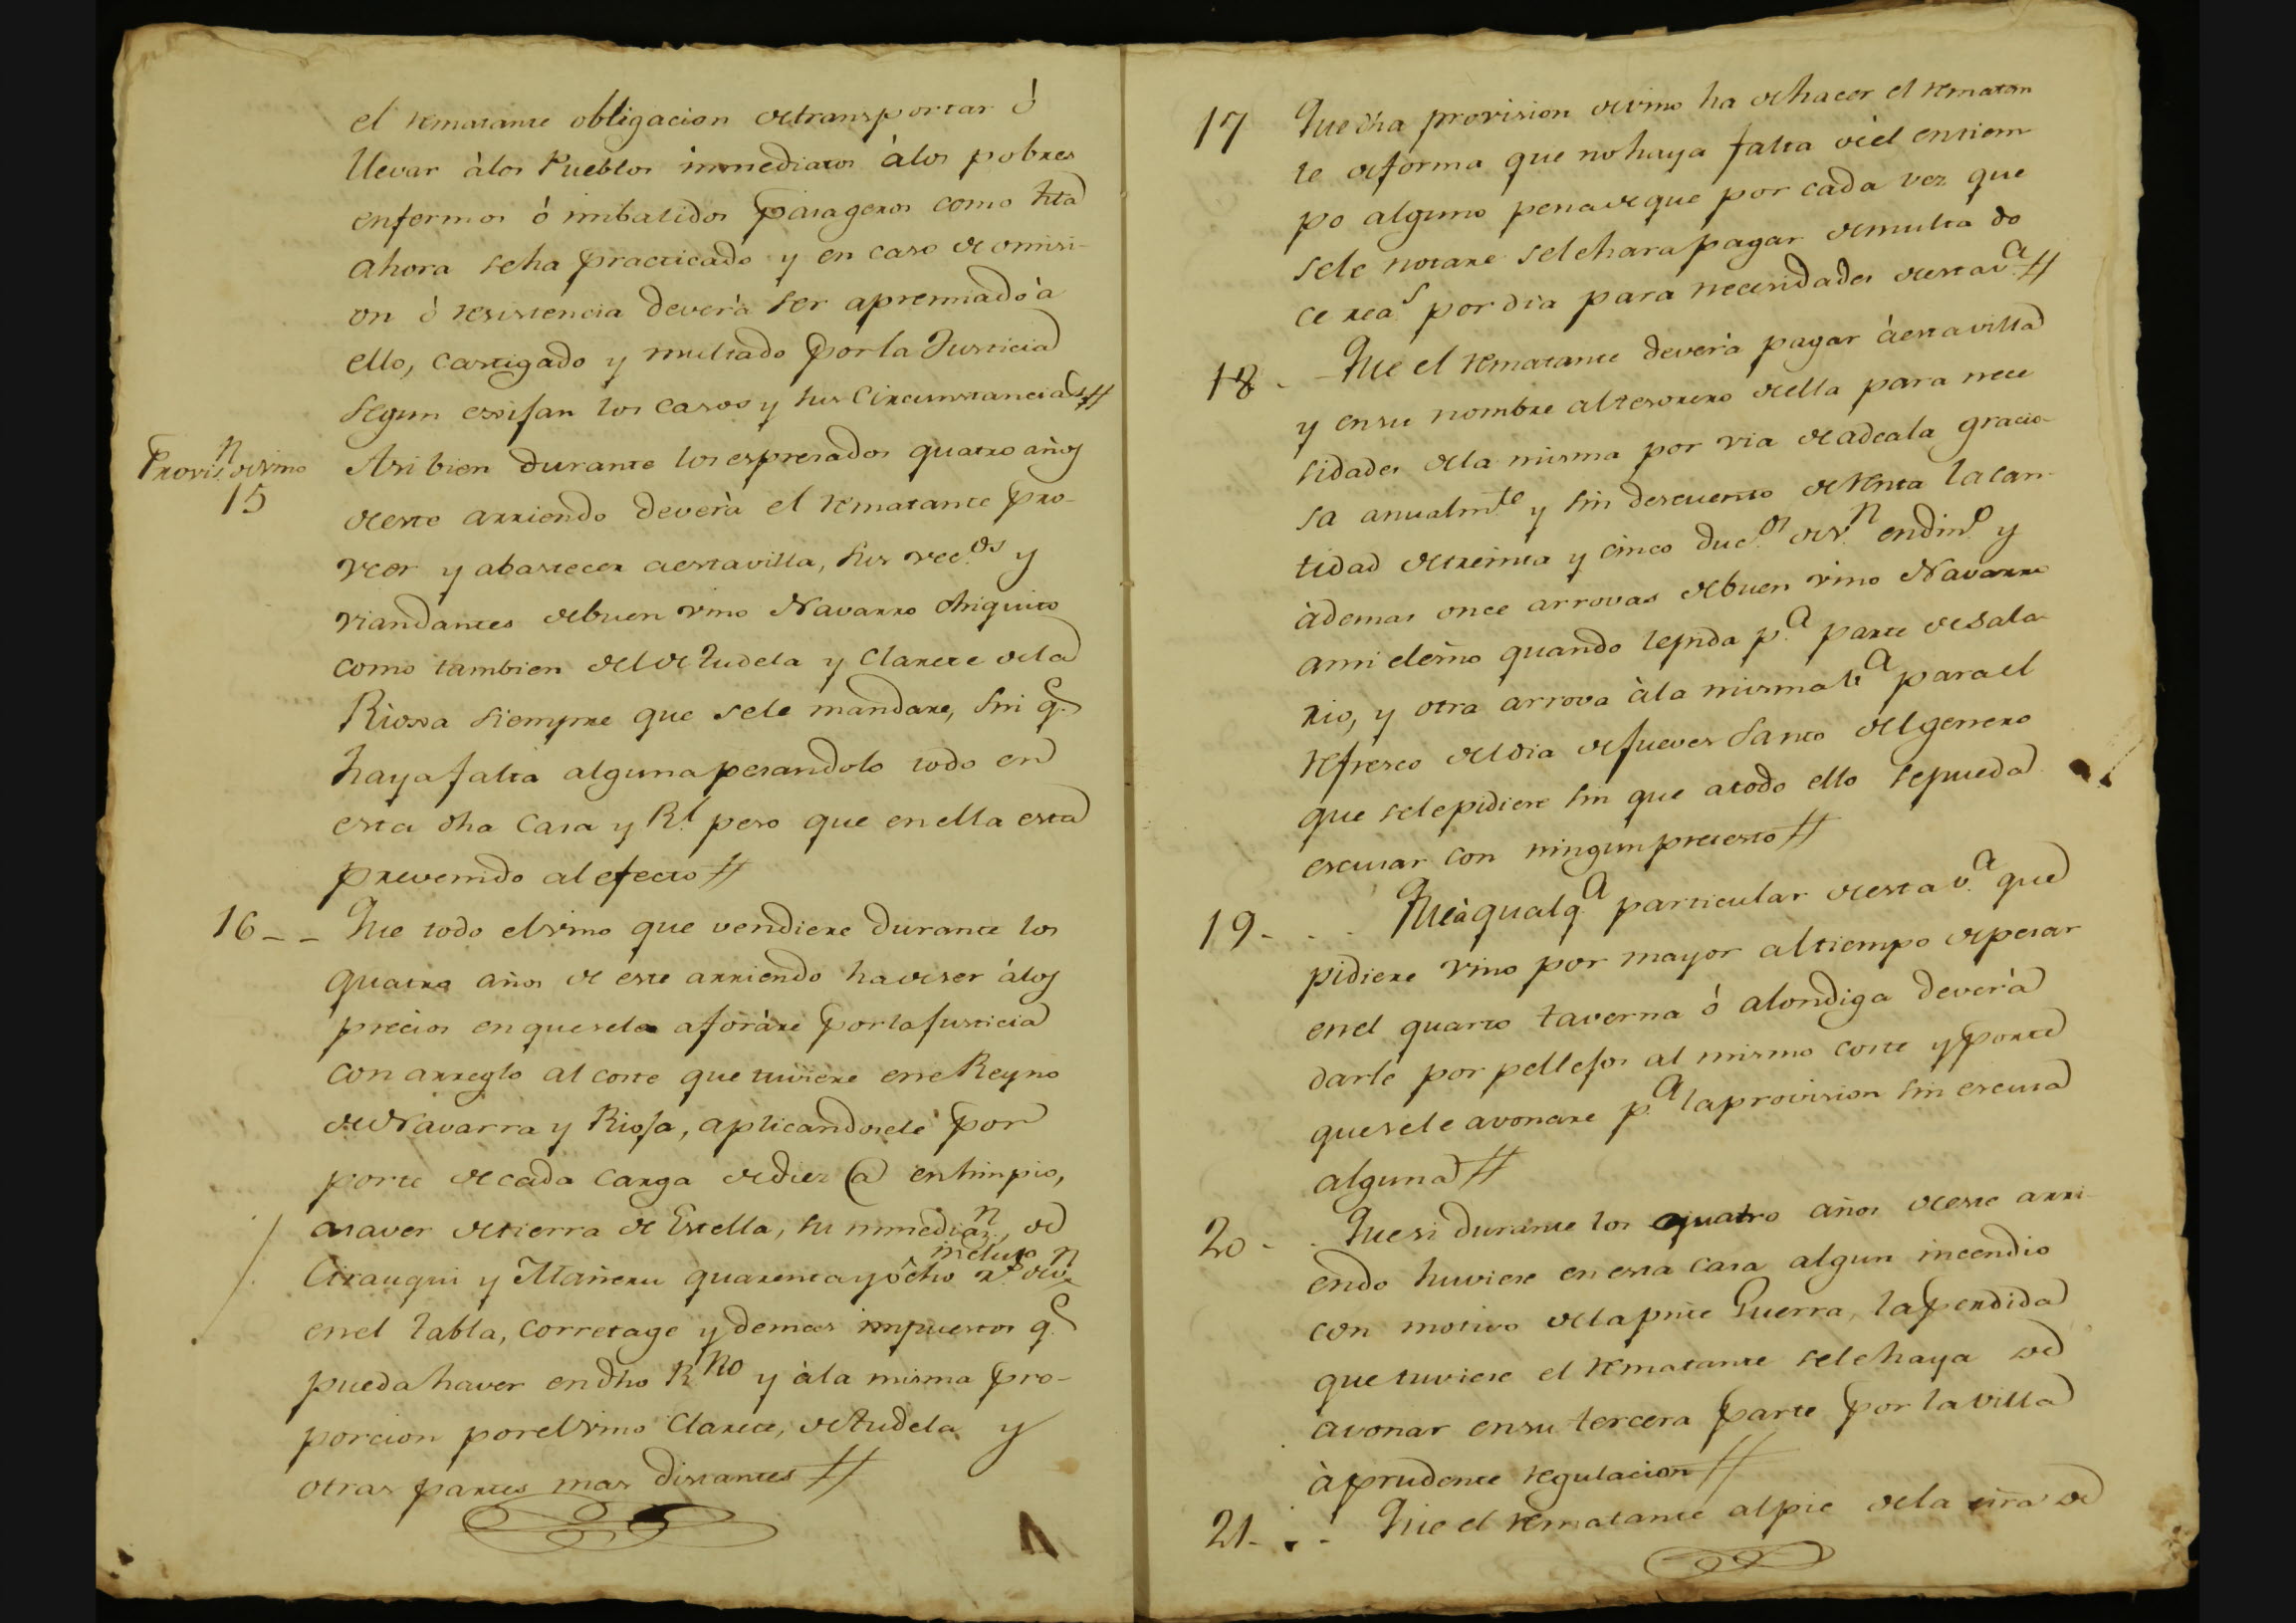 el rematante obligacion de transportar ó
llevar à los Pueblos inmediatos à los pobres
enfermos ó imbalidos pasageros como hta
ahora se ha practicado y en caso de omisi-
on ó resistencia deverà ser apremiado à
ello, castigado y multado por la Justicia
segun exsijan los casos y sus circunstancias #
Provis.n de vino
15
Asi bien durante los espresados quatro años
de este arriendo deverà el rematante pro-
veer y abastecer a esta villa, sus vec.os y
viandantes de buen vino Navarro chiquito
como tambien del de Tudela y Clarete de la
Rioxa siempre que se le mandare, sin q.e
haya falta alguna pesandolo todo en
esta dha Casa y R.l peso que en ella esta
prevenido al efecto #
16 - - Que todo el vino que vendiere durante los
quatro años de este arriendo ha de ser à los
precios en que se le aforàre por la Justicia
con arreglo al coste que tuviere en e Reyno
de Navarra y Rioja, aplicandosele por
porte de cada carga de diez @ en limpio,
a saver de tierra de Estella, su inmedia.n, de
incluso
Cirauqui y Mañeru quarenta y ócho r.s de v.n
en el tabla, corretage y demas impuestos q.e
pueda haver en dho R.no y à la misma pro-
porcion por el vino Clarete, de Tudela y
otras partes mas distantes #
17 Que dha provision de vino ha de hacer el rematan
te de forma que no haya falta de èl en tiem
po alguno pena de que por cada vez que
se le notare se le hara pagar de multa do
ce rea.s por dia para necesidades de esta v.a #
18 - - Que el rematante deverà pagar à esta villa
y en su nombre al tesorero de ella para nece
sidades de la misma por via de adeala gracio-
sa anualm.te y sin descuento de renta la can-
tidad de treinta y cinco duc.os de v.n en din.o y
àdemas once arrovas de buen vino Navarro
ami el ssño quando le pida p.a parte de sala
rio, y otra arrova à la misma v.a para el
refresco del dia de Jueves Santo del genero
que se le pidiere sin que a todo ello se pueda
escusar con ningun pretesto #
19 - - - Que à qualq.a particular de esta v.a que
pidiere vino por mayor al tiempo de pesar
en el quarto taverna ó alondiga deverà
darle por pellejos al mismo coste y porte
que se le avonare p.a la provision sin escusa
alguna #
20 - - Que si durante los quatro años de este arri-
endo huviere en esta casa algun incendio
con motivo de la pnte Guerra, la perdida
que tuviere el rematante se le haya de
avonar en su tercera parte por la villa
à prudente regulacion #
21 - - - Que el rematante al pie de la ssra de